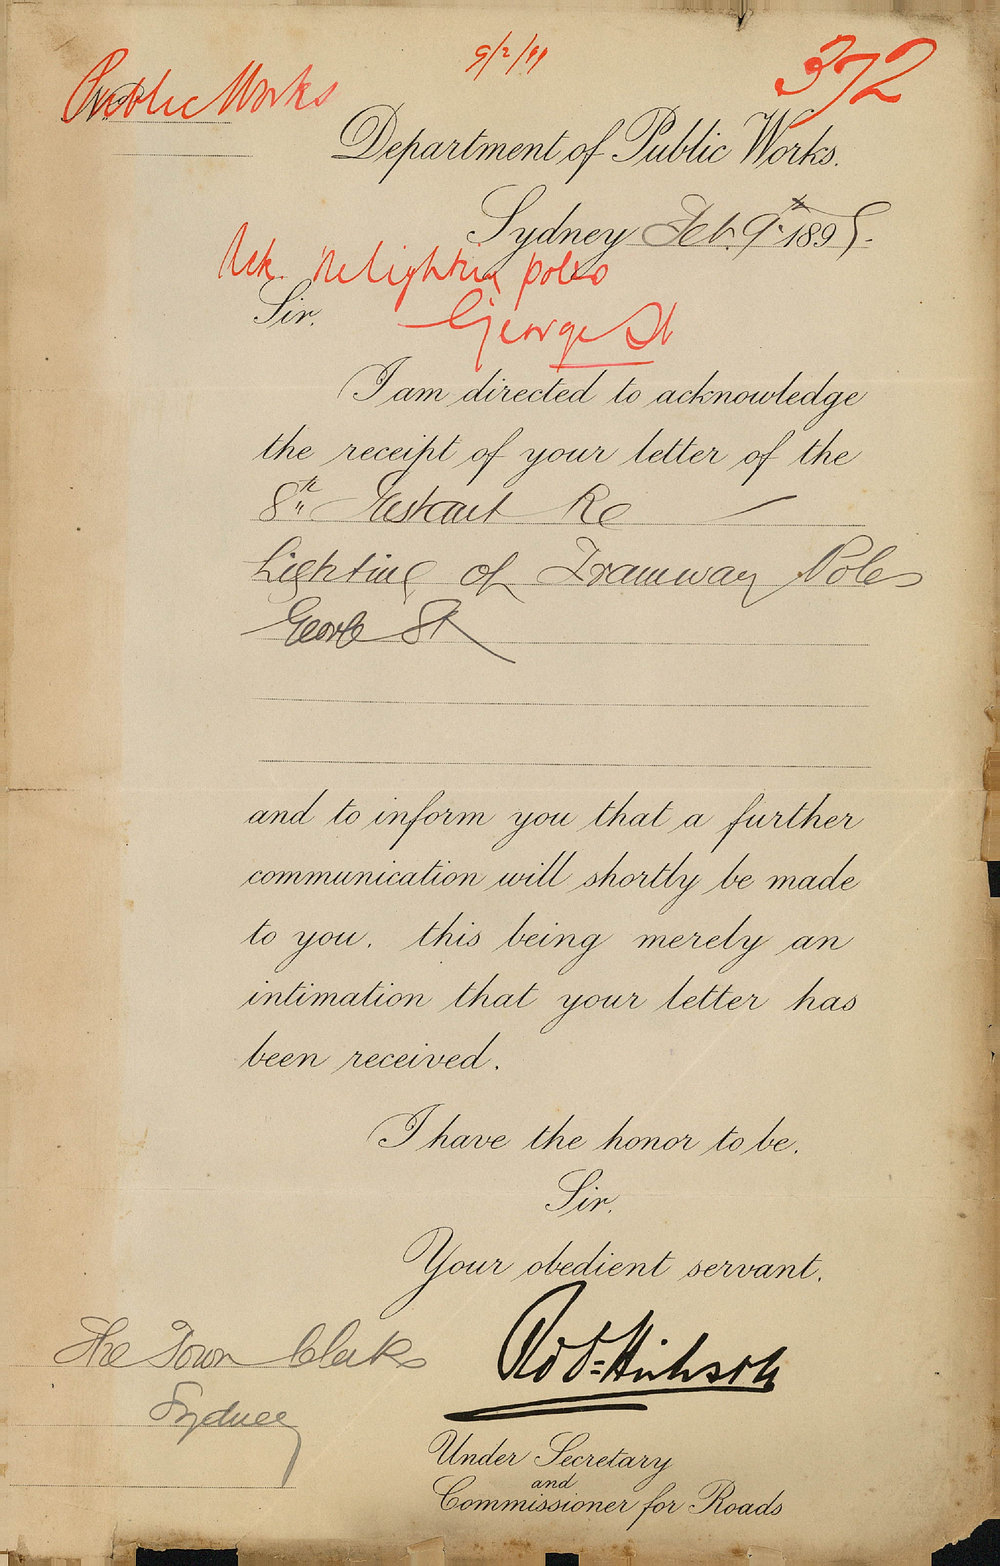 Public Works
9/2/99
372
Department of Public Works.
Sydney Feb. 9th 1899.
Ack. re lighting poles
George St
Sir,
I am directed to acknowledge
the receipt of your letter of the
8th Instant Re
Lighting of Tramway Poles
George St
and to inform you that a further
communication will shortly be made
to you, this being merely an
intimation that your letter has
been received.
I have the honor to be,
Sir,
Your obedient servant,
Robt Hickson
The Town Clerk
Sydney
Under Secretary
and
Commissioner for Roads